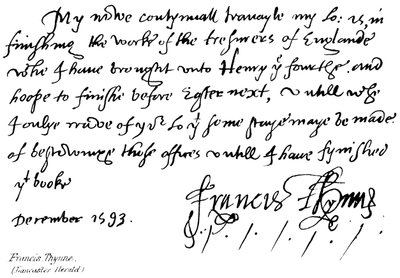 My nowe contynuall travayle my lo: is, in
finishing the worke of the tresurers of Englande
whc I have brought unto Henry ye fourthe. and
hoope to finishe before Ester next, untill whc
I only crave of yor lo yt some staye maye be made
of bestowinge those offices untill I have fynished
yt booke
Francis Thynne
December 1593.
Francis Thynne.
(Lancaster Herald)